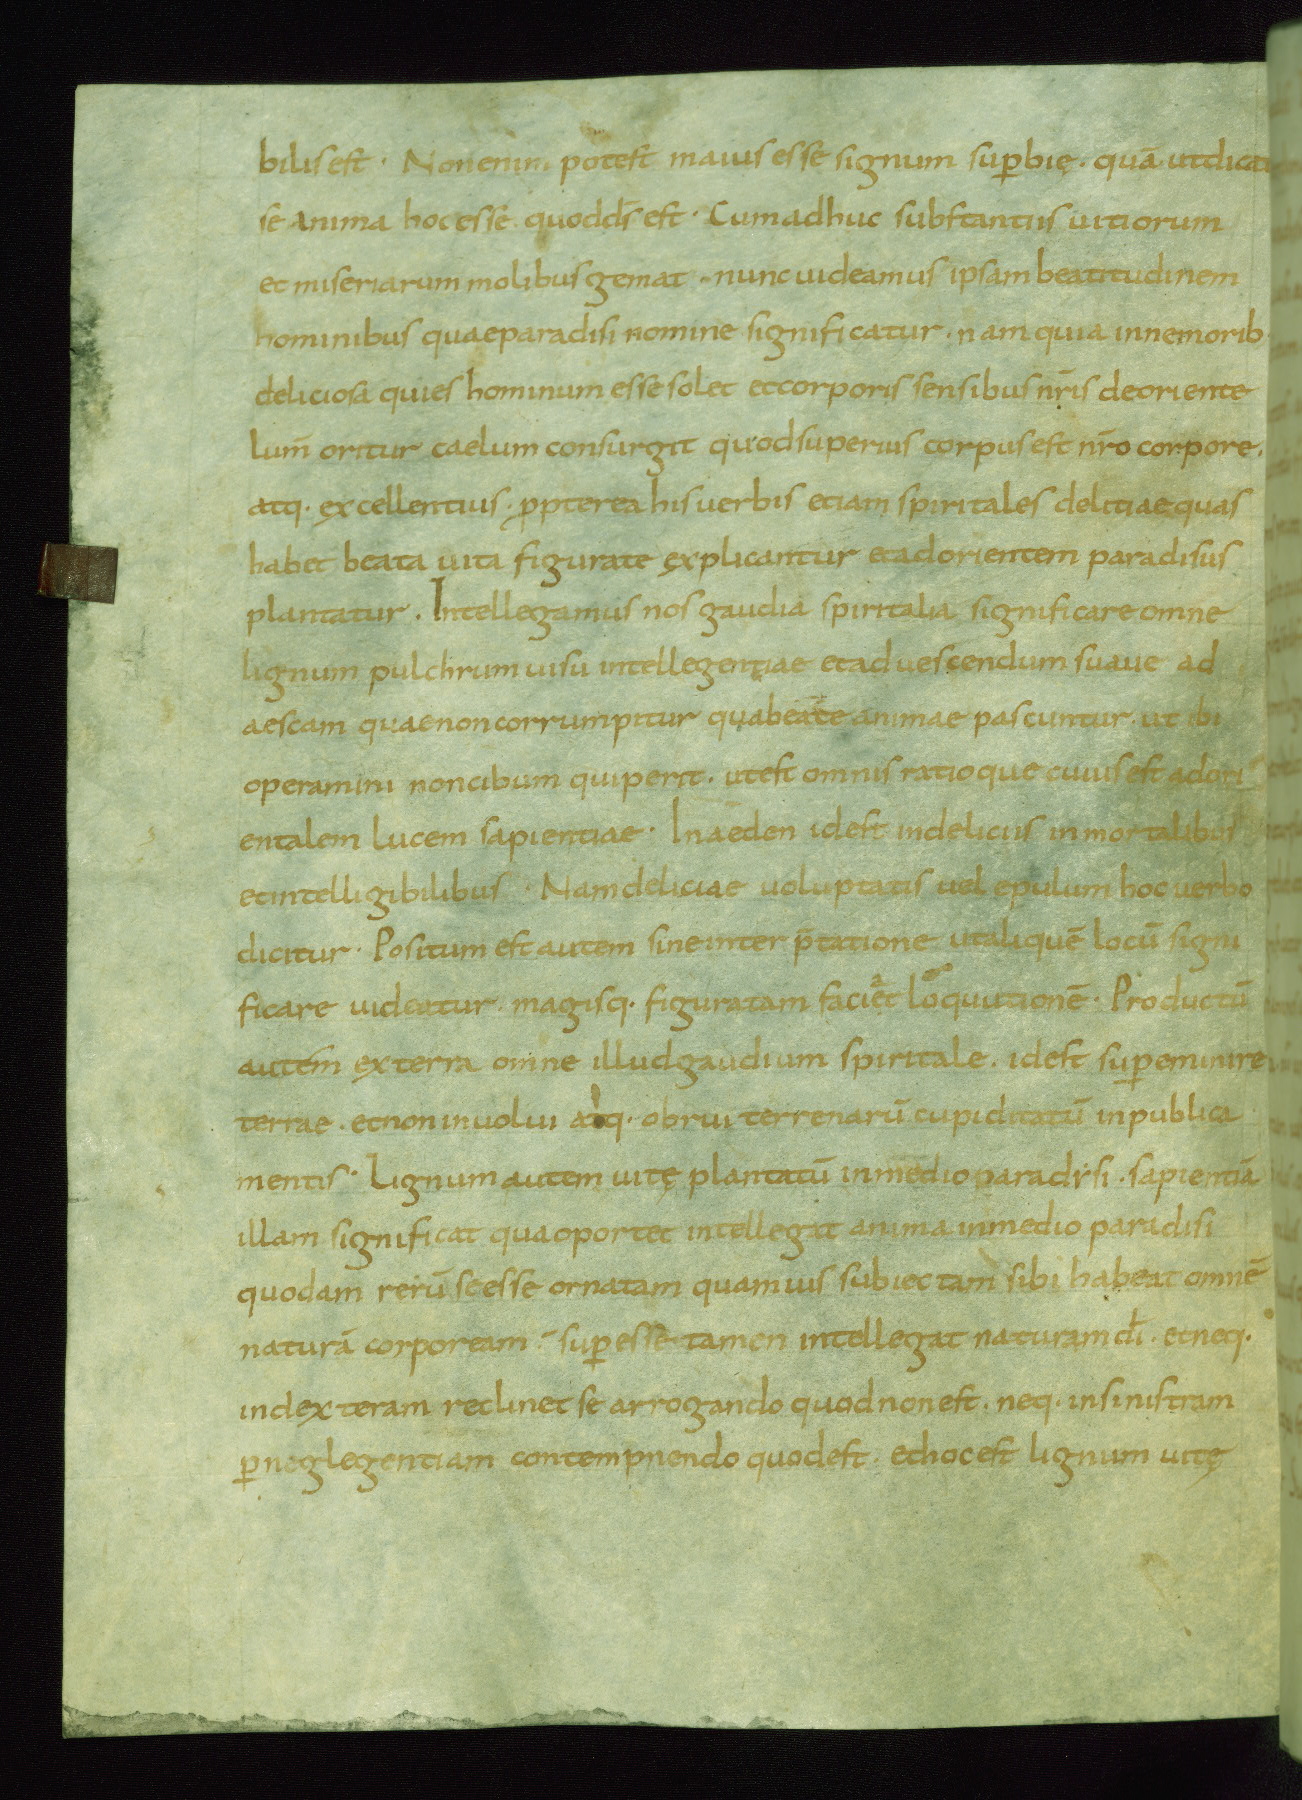 bilis est · Non enim potest maius esse signum sup̲bię · quā ut dicat
se anima hoc esse quod ds̄ est · Cum adhuc substantiis uitiorum
et miseriarum molibus gemat · nunc uideamus ipsam beatitudinem
hominibus quae paradisi nomine significatur · nam quia in nemorib·
deliciosa quies hominum esse solet et corporis sensibus nr̄is de oriente
lum̄ oritur caelum consurgit quod superius corpus est nr̄o corpore ·
atq· excellentius · p̱pterea his uerbis etiam spiritales delitiae quas
habet beata uita figurate explicantur et ad orientem paradisus
plantatur · Intellegamus nos gaudia spiritalia significare omne
lignum pulchrum uisu intellegentiae et ad uescendum suaue ad
aescam quae non corrumpitur qua beatae animae pascuntur · ut ibi
operamini non cibum qui perit · ut est omnis ratio que cuius est ad ori
entalem lucem sapientiae · In aeden id est in deliciis inmortalibus
et intelligibilibus · Nam deliciae uoluptatis uel epulum hoc uerbo
dicitur · Positum est autem sine interp̄tatione ut aliquē locū signi
ficare uideatur · magisq· figuratam faciat loquutionē · Productū
autem ex terra omne illud gaudium spiritale · id est sup̲eminire
terrae · et non inuolui atq· obrui terrenarū cupiditatū inpublica
mentis · Lignum autem uitę plantatū in medio paradysi · sapientiā
illam significat qua oportet intellegat anima in medio paradisi
quodam rerū se esse ornatam quamuis subiectam sibi habeat omnē
naturā corpoream · sup̲ esse tamen intellegat naturam dī · et neq·
in dexteram reclinet se arrogando quod non est · neq· in sinistram
p̲ neglegentiam contempnendo quod est · et hoc est lignum uitę